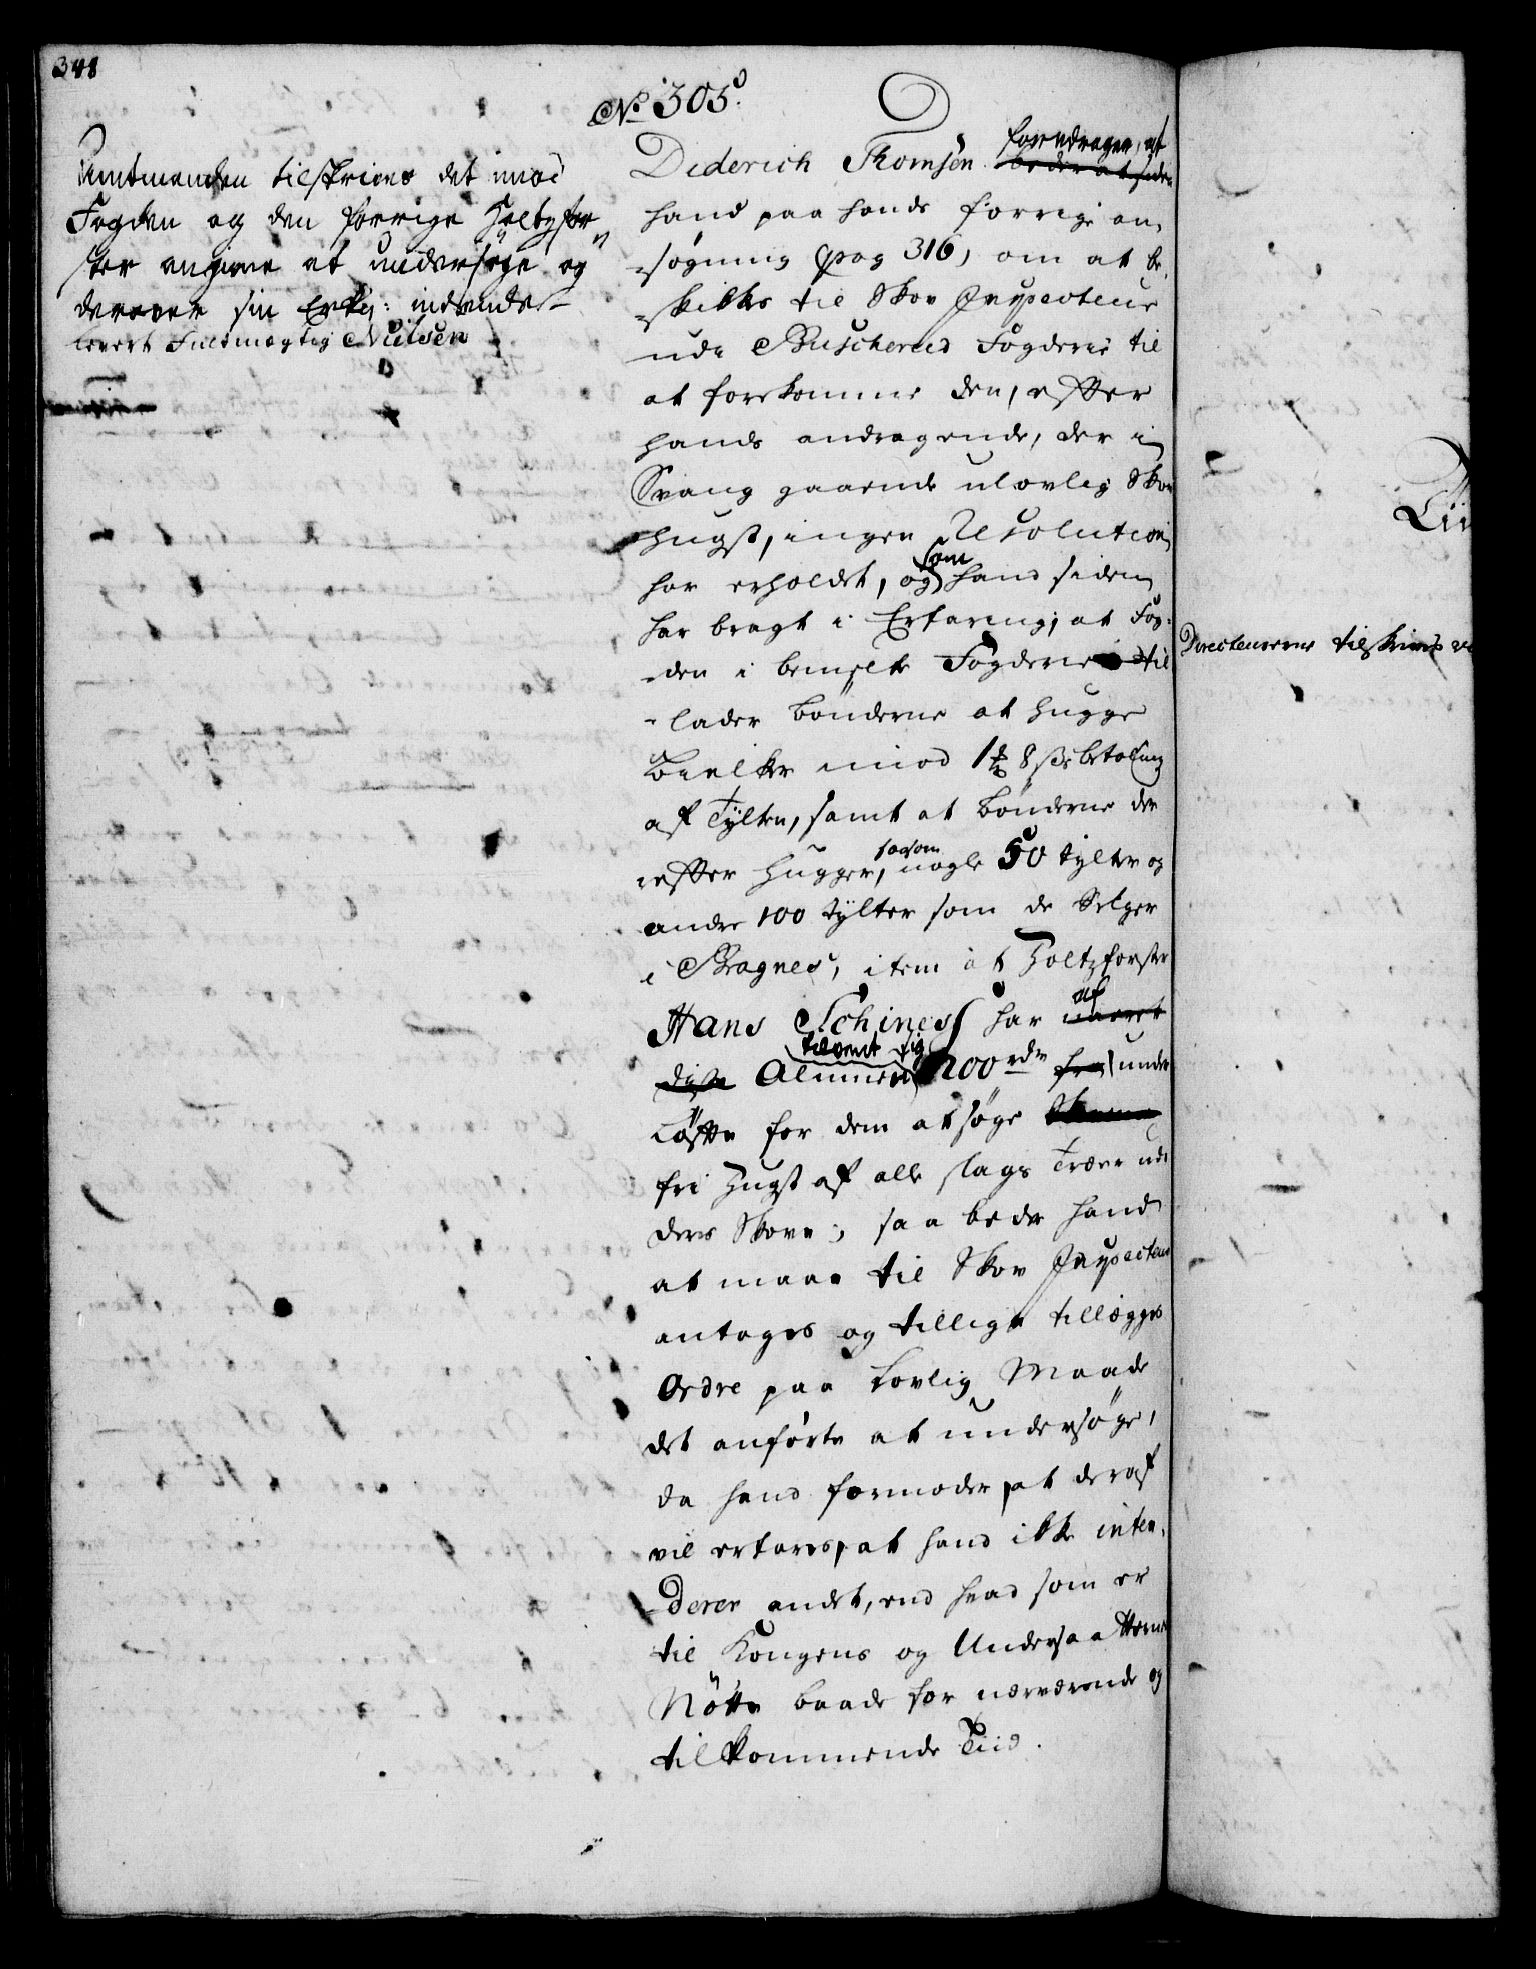 348
No 305.
Amtmanden tilskrives det imod
Fogden og den forrige Holtzfor
ster angivne at undersøge og
derover sin Erkl: indsende
levert Fuldmægtig Nielsen
Diderich Thomsen foredrager, at
beder at siden
hand paa hands forrige an„
„søgning (pag 316) om at be„
„skikkes til Skov Inspecteur
udi Buscherud Fogderie til
at forekomme den, effter
hands andragende, der i
Svang gaaende ulovlig Skov
Hugst, ingen Resolution
har erholdet, og som hand siden
har bragt i Erfaring, at Fog„
„den i bemelte Fogderie til
„lader bønderne at hugge
Bielker imod 1 8 s betaling
af Tylten, samt at bønderne der
effter Hugger, saasom nogle 50 tylter og
andre 100 tylter som de Selger
i Bragnes, item at Holtzforster
Hans Schines har af
Alminen tilvent sig 200 rdr for under
Løffte for dem at søge
fri Hugst af alle slags Træer udi
deris Skove; saa beder hand
at maae til Skov Inspecteur
antages og tillige tillegges
Ordre paa lovlig Maade
det anførte at undersøge,
da hand formoder, at deraf
vil erfares, at hand ikke inten„
„derer andet, end hvad som er
til Kongens og Undersaatternes
Nøtte baade for nærværende og
tilkommende Tiid.
Directeurerne tilskrives